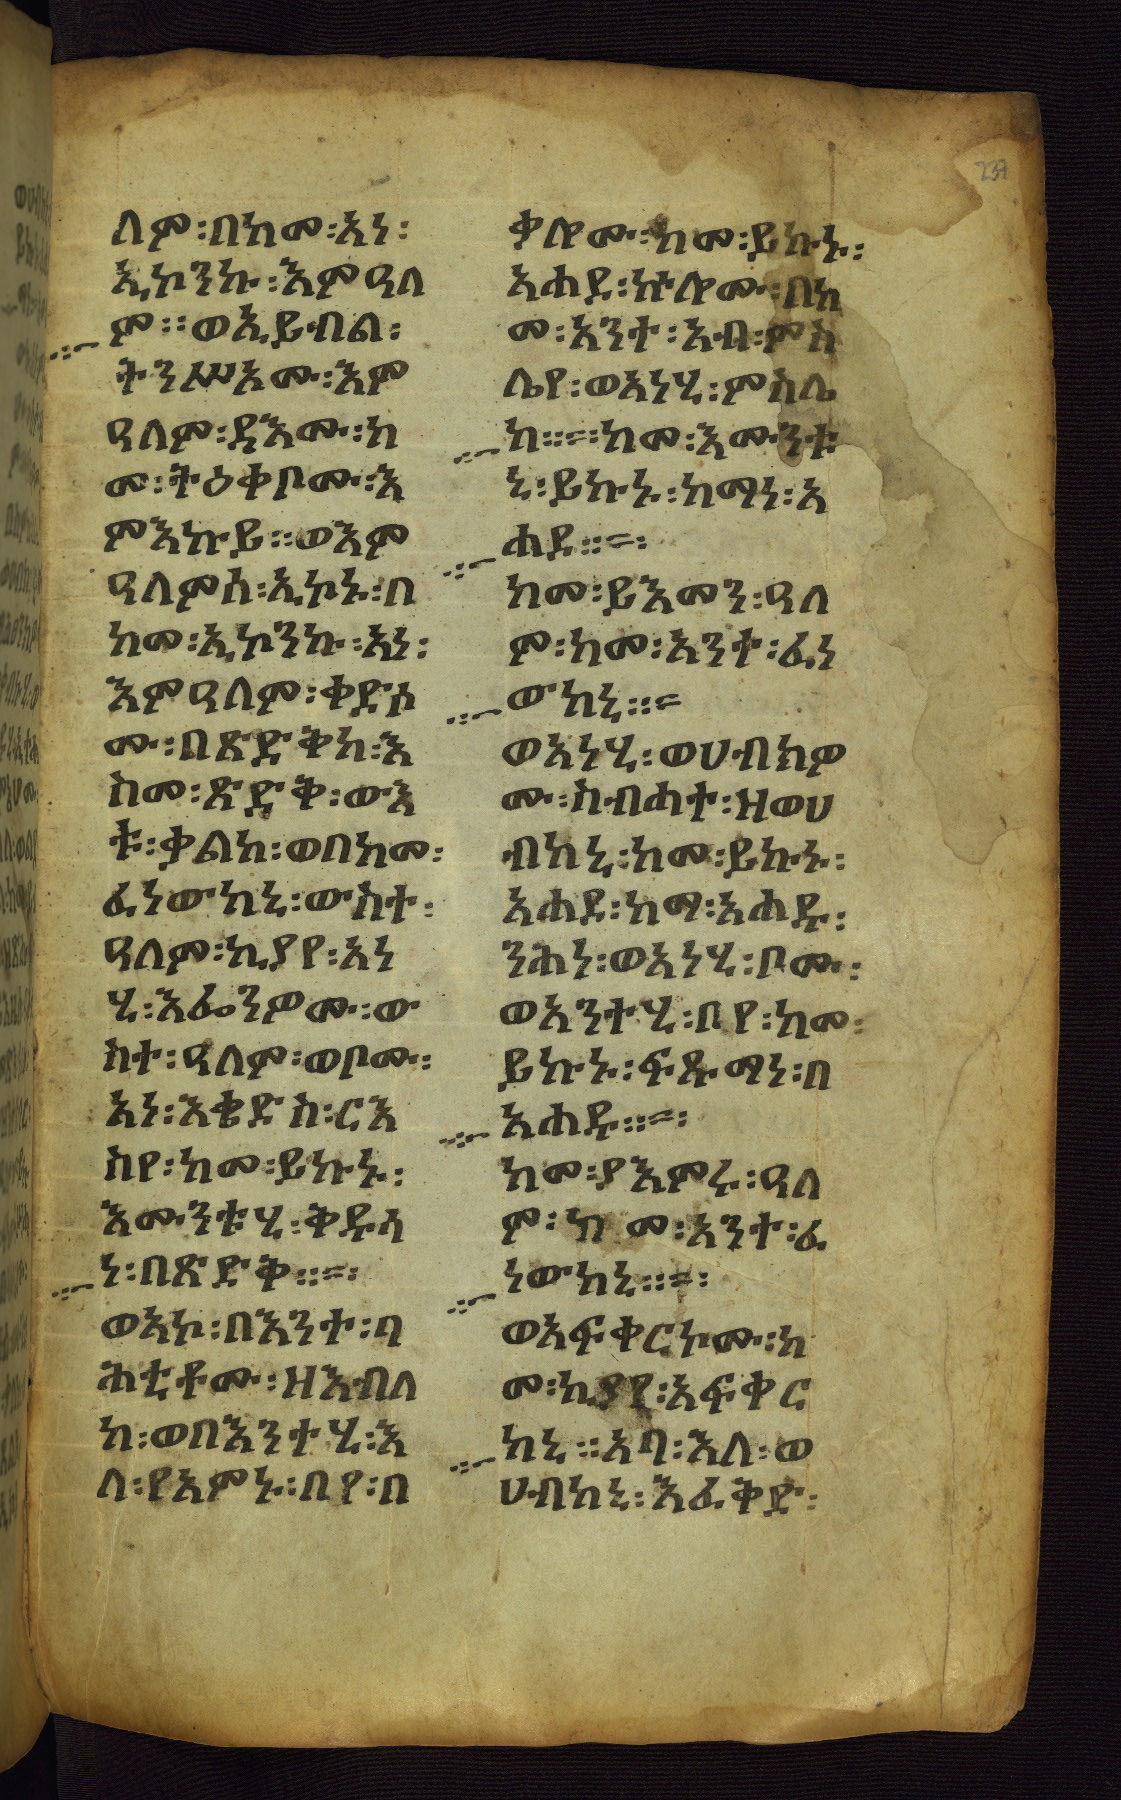 237
ለም፡በከመ፡አነ፡
ኢኮንኩ፡እምዓለ
ም፡፡ወኢይብል፡
ትንሥአሙ፡እም
ዓለም፡ዳእሙ፡ከ
መ፡ትዕቀቦሙ፡እ
ምእኩይ፡፡ወእም
ዓለምሰ፡ኢኮኑ፡በ
ከመ፡ኢኮንኩ፡አነ፡
እምዓለም፡ቀድሶ
ሙ፡በጽድቅከ፡እ
ስመ፡ጽድቅ፡ውእ
ቱ፡ቃልከ፡ወበከመ፡
ፈነውከኒ፡ውስተ፡
ዓለም፡ኪያየ፡አነ
ሂ፡እፌንዎሙ፡ው
ስተ፡ዓለም፡ወቦሙ፡
አነ፡እቄድስ፡ርእ
ስየ፡ከመ፡ይኩኑ፡
እሙንቱሂ፡ቅዱሳ
ነ፡በጽድቅ፡፡=፡
ወአኮ፡በእንተ፡ባ
ሕቲቶሙ፡ዘእብለ
ከ፡ወበእንተሂ፡እ
ለ፡የአምኑ፡በየ፡በ
ቃሎሙ፡ከመ፡ይኩኑ፡
አሐደ፡ኵሎሙ፡በከ
መ፡አንተ፡አብ፡ምስ
ሌየ፡ወአነሂ፡ምስሌ
ከ፡፡=፡ከመ፡እሙንቱ
ኒ፡ይኩኑ፡ከማነ፡አ
ሐደ፡፡=፡
ከመ፡ይእመን፡ዓለ
ም፡ከመ፡አንተ፡ፈነ
ውከኒ፡፡=
ወአነሂ፡ወሀብክዎ
ሙ፡ስብሐተ፡ዘወሀ
ብከኒ፡ከመ፡ይኩኑ፡
አሐደ፡ከማ፡አሐዱ፡
ንሕነ፡ወአነሂ፡ቦሙ፡
ወአንተሂ፡ብየ፡ከመ፡
ይኩኑ፡ፍጹማነ፡በ
አሐዱ፡፡=፡
ከመ፡ያእምሩ፡ዓለ
ም፡ከመ፡አንተ፡ፈ
ነውከኒ፡፡=፡
ወአፍቀርኮሙ፡ከ
መ፡ኪያየ፡አፍቀር
ከኒ፡፡አባ፡እለ፡ወ
ሀብከኒ፡እፈቅድ፡